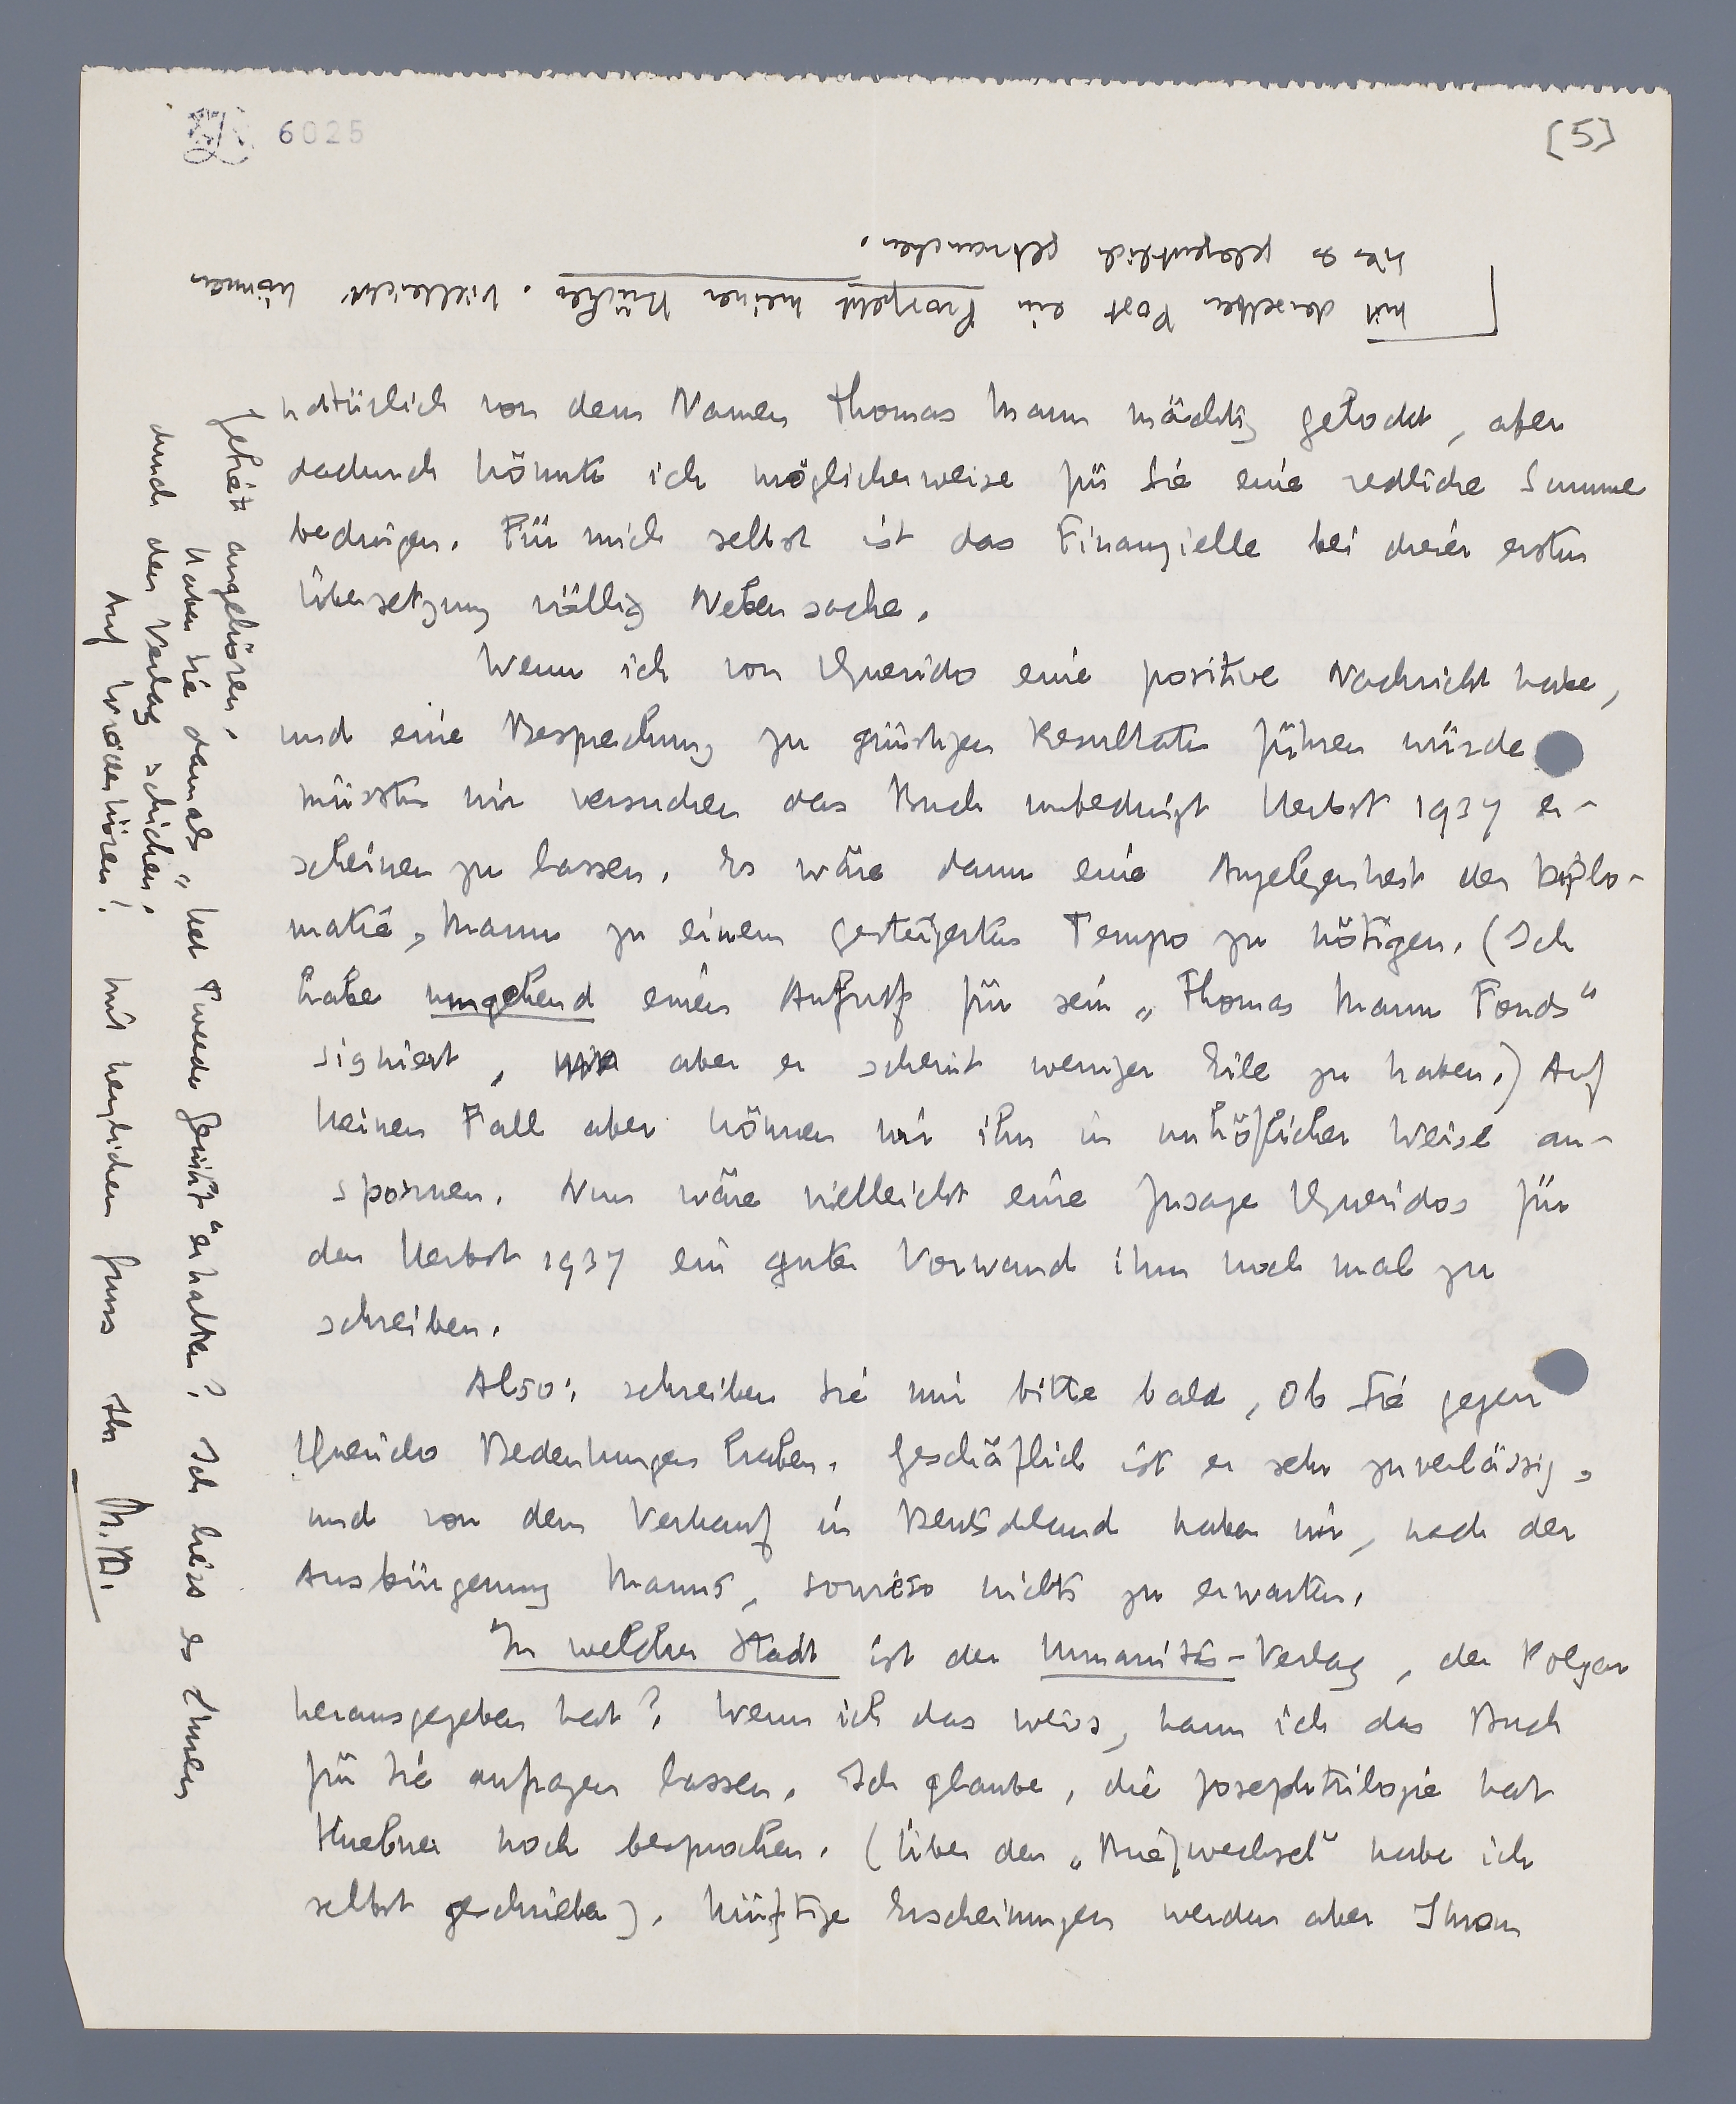 6025
[5]
mit derselben Post ein Prospekt meiner Bücher. Vielleicht können
Sie es gelegentlich gebrauchen.
natürlich von dem Namen Thomas Mann mächtig gelockt, aber
dadurch könnte ich möglicherweise für Sie eine redliche Summe
bedingen. Für mich selbst ist das Finanzielle bei dieser ersten
Übersetzung völlig Nebensache.
Wenn ich von Querido eine positive Nachricht habe,
und eine Besprechung zu günstigen Resultaten führen würde
müssten wir versuchen das Buch unbedingt Herbst 1937 er-
scheinen zu lassen. Es wäre dann eine Angelegenheit der Diplo-
matie, Mann zu einem gesteigerten Tempo zu nötigen. (Ich
habe umgehend einen Aufruf für sein „Thomas Mann Fonds"
signiert, aber er scheint weniger Eile zu haben.) Auf
keinen Fall aber können wir ihn in unhöflicher Weise an-
spornen. Nun wäre vielleicht eine Zusage Queridos für
den Herbst 1937 ein guter Vorwand ihm noch mal zu
schreiben.
Also: schreiben Sie mir bitte bald, ob Sie gegen
Querido Bedenkungen haben. Geschäftlich ist er sehr zuverlässig,
und von dem Verkauf in Deutschland haben wir, nach der
Ausbürgerung Manns, sowieso nichts zu erwarten.
In welcher Stadt ist der Humanitas-Verlag, der Polgar
herausgegeben hat? Wenn ich das weiss, kann ich das Buch
für Sie anfragen lassen. Ich glaube, die Josephtrilogie hat
Huebner noch besprochen. (Über den „Briefwechsel" habe ich
selbst geschrieben). Künftige Erscheinungen werden aber Ihrem
Gebiete angehören.
Haben Sie damals „Het Tweede Gezicht" erhalten? Ich liess es Ihnen
durch den Verlag schicken.
Auf Wiederhören! Mit herzlichem Gruss Ihr M.t.B.